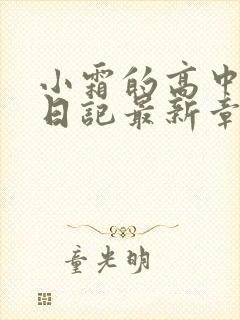 小霜的高中
日記最新章
童光明